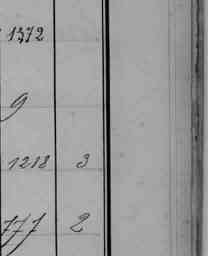 1372
9
1218 3
777 2